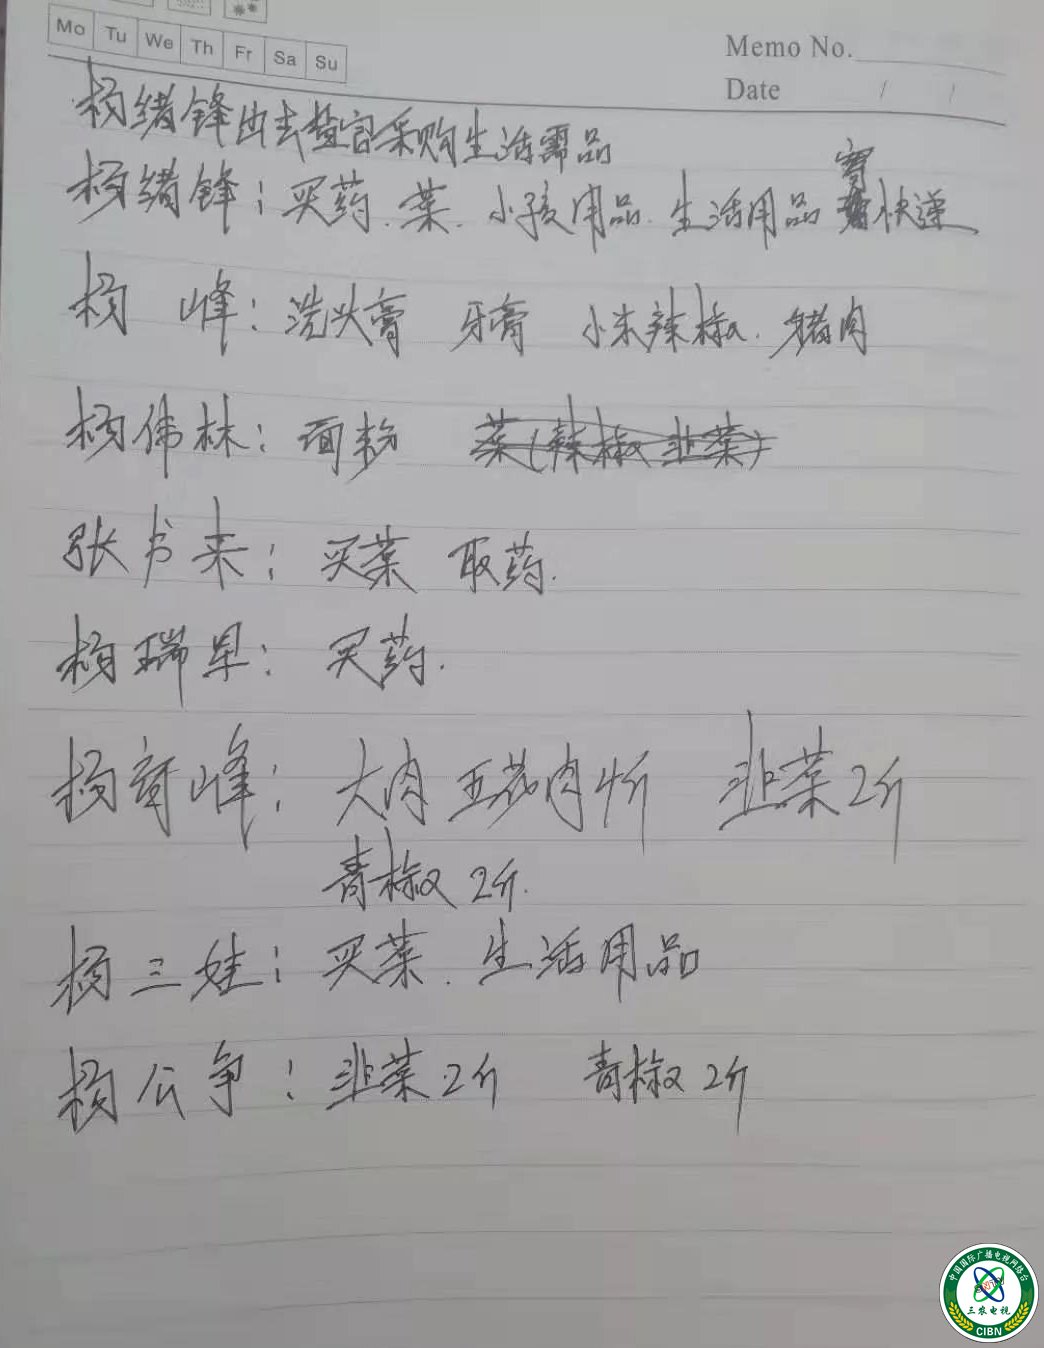 Mo Tu We Th Fr Sa Su
Memo No.
Date / /
杨绪锋出去 采购生活需品
杨绪锋：买药.菜.小孩用品.生活用品 寄快递
杨 峰：洗头膏 牙膏 小米辣椒.猪肉
杨伟林：面粉 菜(辣椒 韭菜)
张书来：买菜 取药.
杨瑞早：买药.
杨 峰：大肉 五花肉4斤 韭菜2斤
青椒2斤.
杨三娃：买菜.生活用品
杨公争：韭菜2斤 青椒2斤
中国国际广播电视网络台
三农电视
CIBN